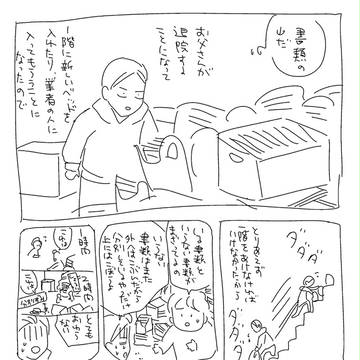 書類の
山だ
お父さんが
退院する
ことになって
一階に新しいベッドを
入れたり、業者の人に
入ってもらうことに
なったので
とりあえず
一階をあけなければ
いけなかったから
ダダダ
ダダダ
いる書類と
いらない書類が
まざってるの
いらない
書類はまた
分別
一時間
二時間
とても
おわら
ない